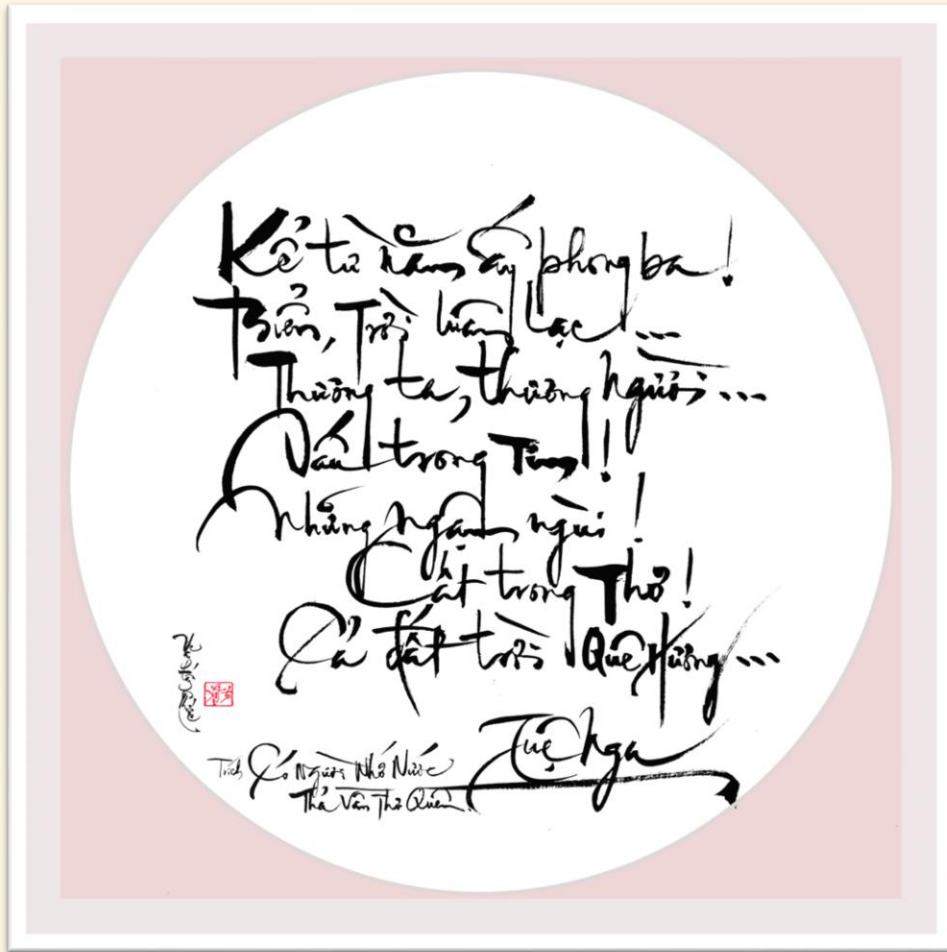 Kể từ năm ấy phong ba!
Biển, Trời luân lạc!...
Thương ta, thương người...
Dấu trong Tim!
Những ngậm ngùi!
Cất trong Thơ!
Cả đất trời Quê Hương...
Tuệ Nga
Trích Có Người Nhớ Nước
Thả Vần Thơ